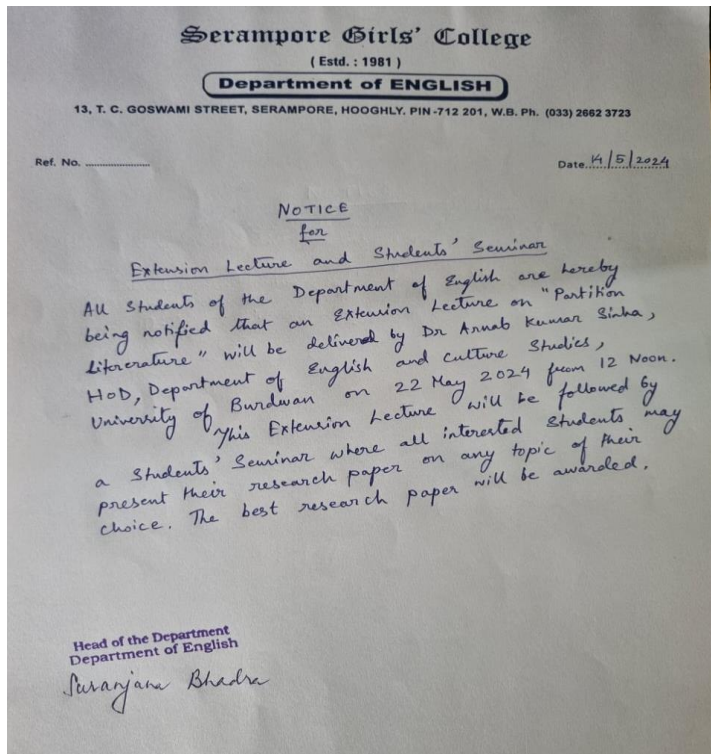 Serampore Girls' College
( Estd. : 1981 )
Department of ENGLISH
13, T. C. GOSWAMI STREET, SERAMPORE, HOOGHLY. PIN-712 201, W.B. Ph. (033) 2662 3723
Ref. No. ........................
Date. 14/5/2024
NOTICE
for
Extension Lecture and Students' Seminar
All Students of the Department of English are hereby
being notified that an Extension Lecture on "Partition
literature" will be delivered by Dr Arnab Kumar Sinha,
HoD, Department of English and Culture Studies,
University of Burdwan on 22 May 2024 from 12 Noon.
This Extension Lecture will be followed by
a Students' Seminar where all interested Students may
present their research paper on any topic of their
choice. The best research paper will be awarded.
Head of the Department
Department of English
Suranjana Bhadra